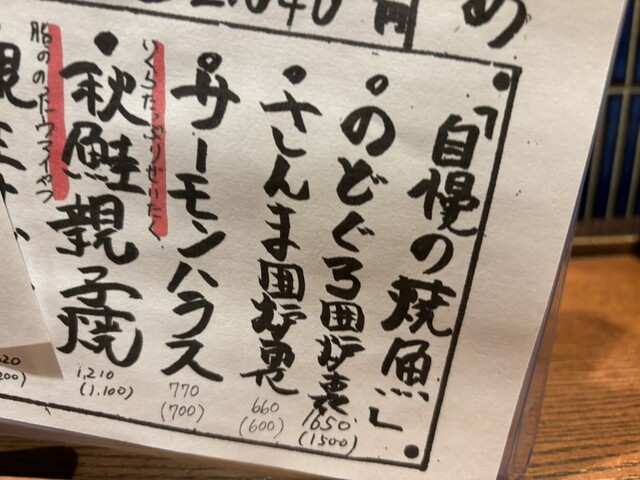 め
円
「自慢の焼魚」
•のどぐろ囲炉裏
1650
(1500)
•さんま囲炉裏
660
(600)
•サーモンハラス
770
(700)
いくらたっぷりぜいたく
•秋鮭親子焼
1,210
(1.100)
脂ののったウマイヤツ